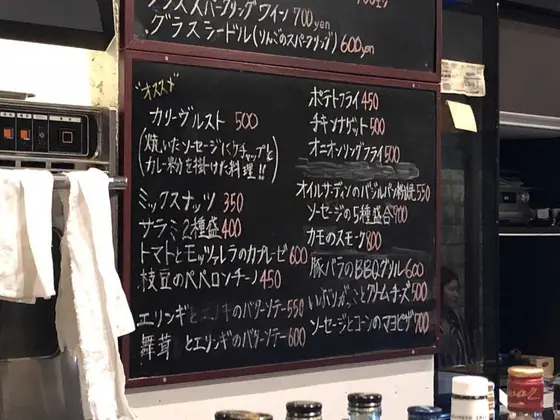 グラススパークリングワイン 700yen
グラスシードル(りんごのスパークリング) 600yen
"オススメ"
カリーヴルスト 500
(焼いたソーセージにケチャップと
カレー粉を掛けた料理!!)
ミックスナッツ 350
サラミ2種盛 400
トマトとモッツァレラのカプレーゼ 600
枝豆のペペロンチーノ 450
エリンギとエノキのバターソテー 550
舞茸 とエリンギのバターソテー 600
ポテトフライ 450
チキンナゲット 500
オニオンリングフライ 500
オイルサーディンのバジルパン粉焼 550
ソーセージの5種盛合 900
カモのスモーク 800
豚バラのBBQグリル 600
いぶりがっことクリームチーズ 500
ソーセージとコーンのマヨピザ 700